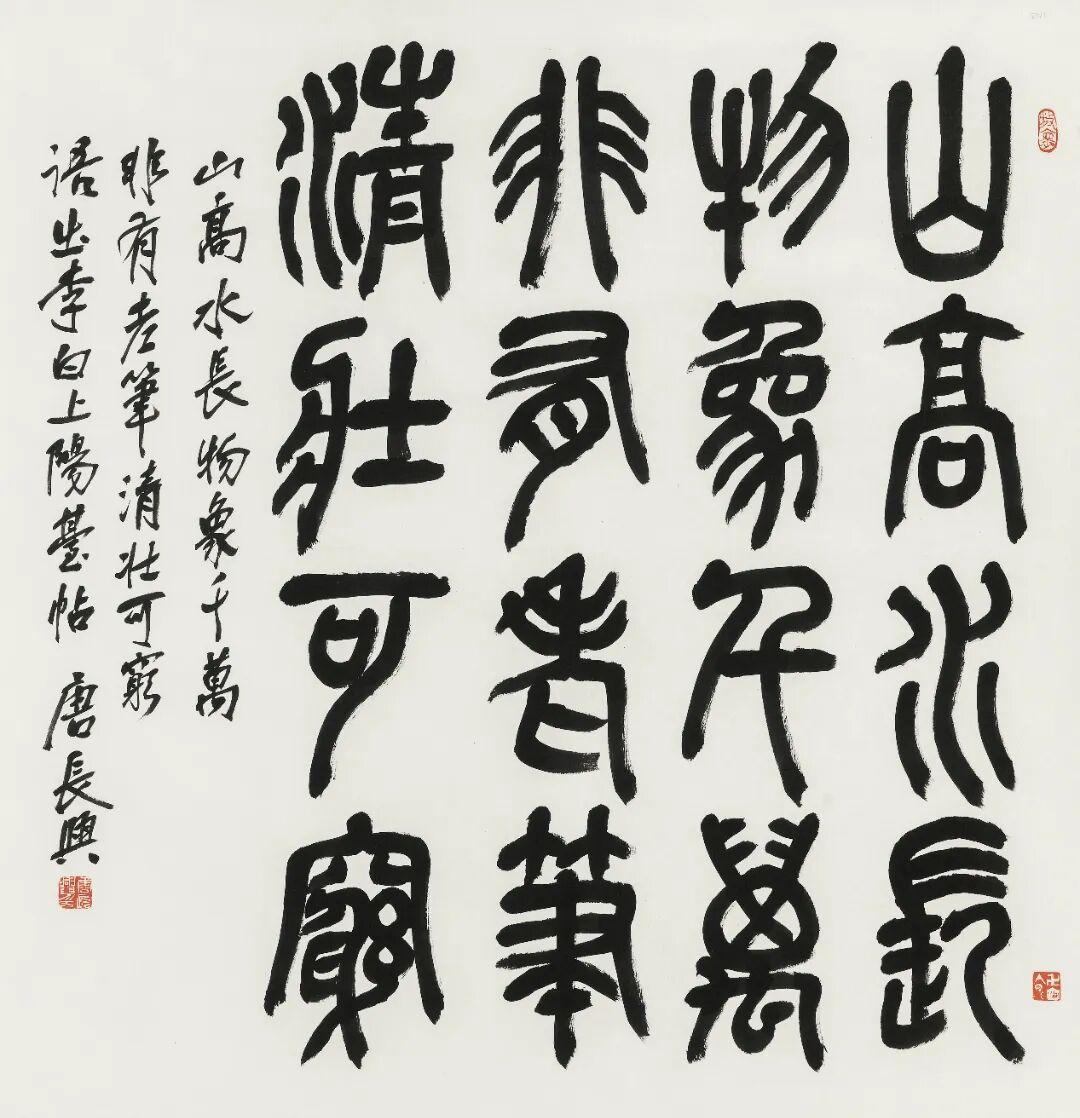 山高水長
物象千萬
非有老筆
清壯可窮
山高水長物象千萬
非有老筆清壯可窮
語出李白上陽臺帖 唐長興